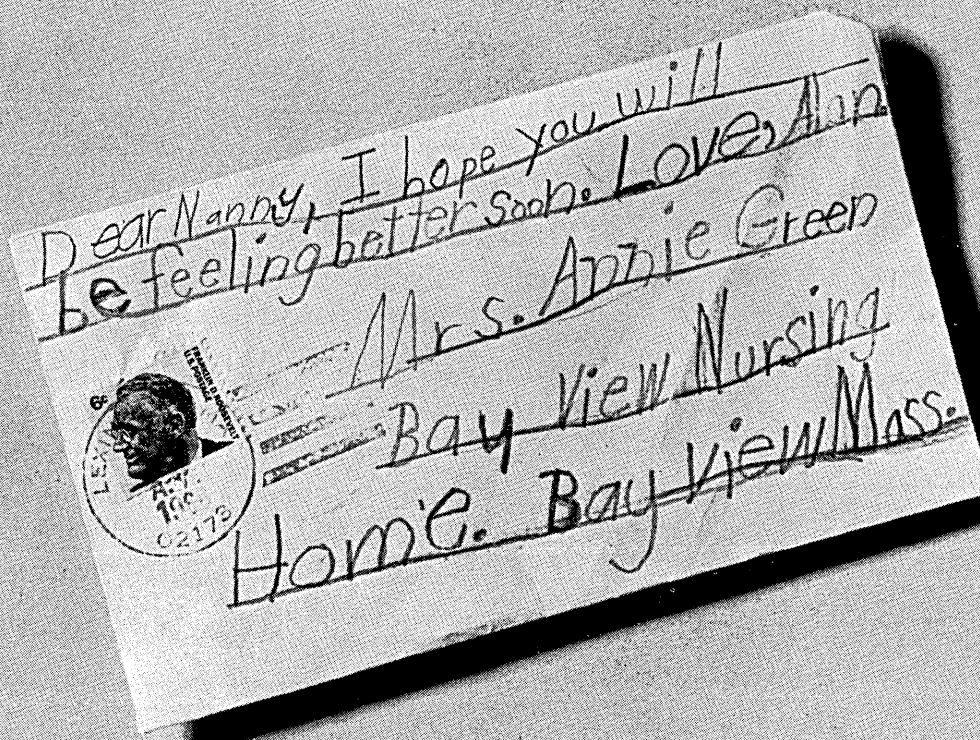 Dear Nanny, I hope you will
be feeling better soon. Love, Alan.
Mrs. Annie Green
Bay View Nursing
Home. Bay View Mass.
FRANKLIN D. ROOSEVELT
U.S. POSTAGE
6c
LEX
02173